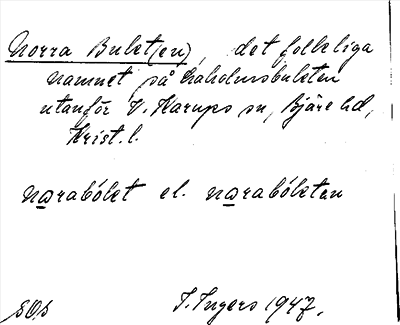 Norra Bukt(en), det folkliga
namnet på Laholmsbukten
utanför V. Karups sn, Bjäre hd,
Krist. l.
narabókt el. narabóktan
SOs I. Ingers 1947.